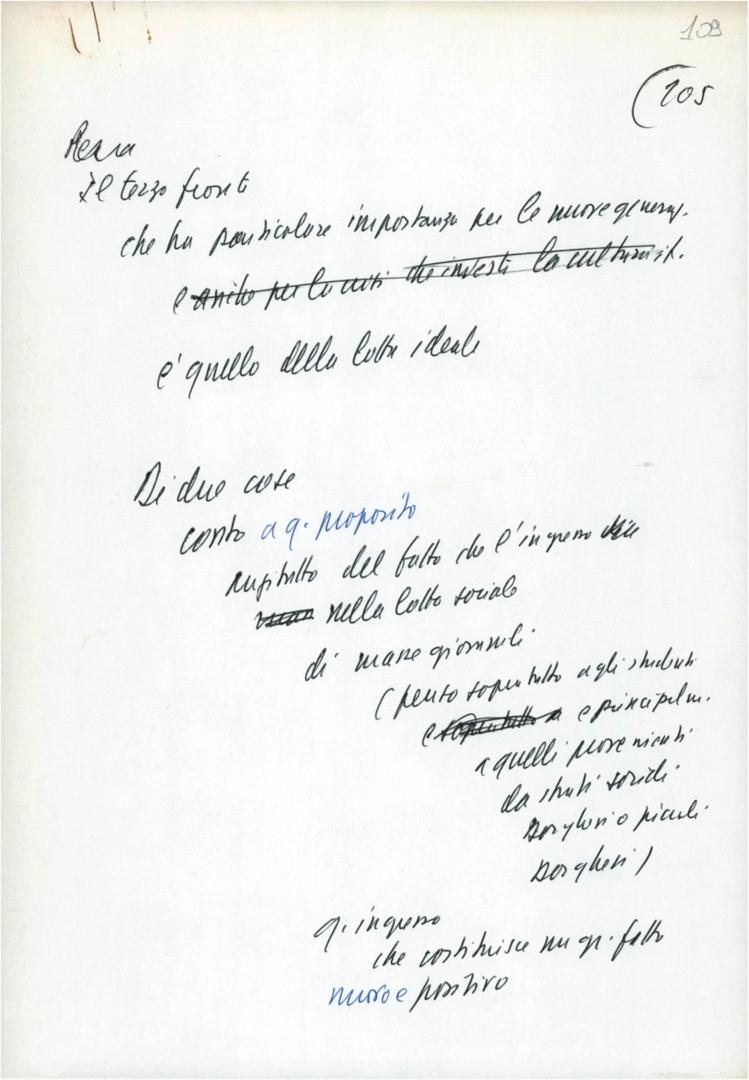 109
(105
Il terzo fronte
che ha particolare importanza per le nuove generaz.
e anche per la crisi che investe la cultura it.
è quello della lotta ideale
Di due cose
conto a q. proposito
anzitutto del fatto che l'ingresso
nella lotta sociale
di masse giovanili
(penso sopratutto agli studenti
e sopratutto a e principalm.
a quelli provenienti
da strati sociali
borghesi o piccoli
borghesi)
q. ingresso
che costituisce un gr. fatto
nuovo e positivo